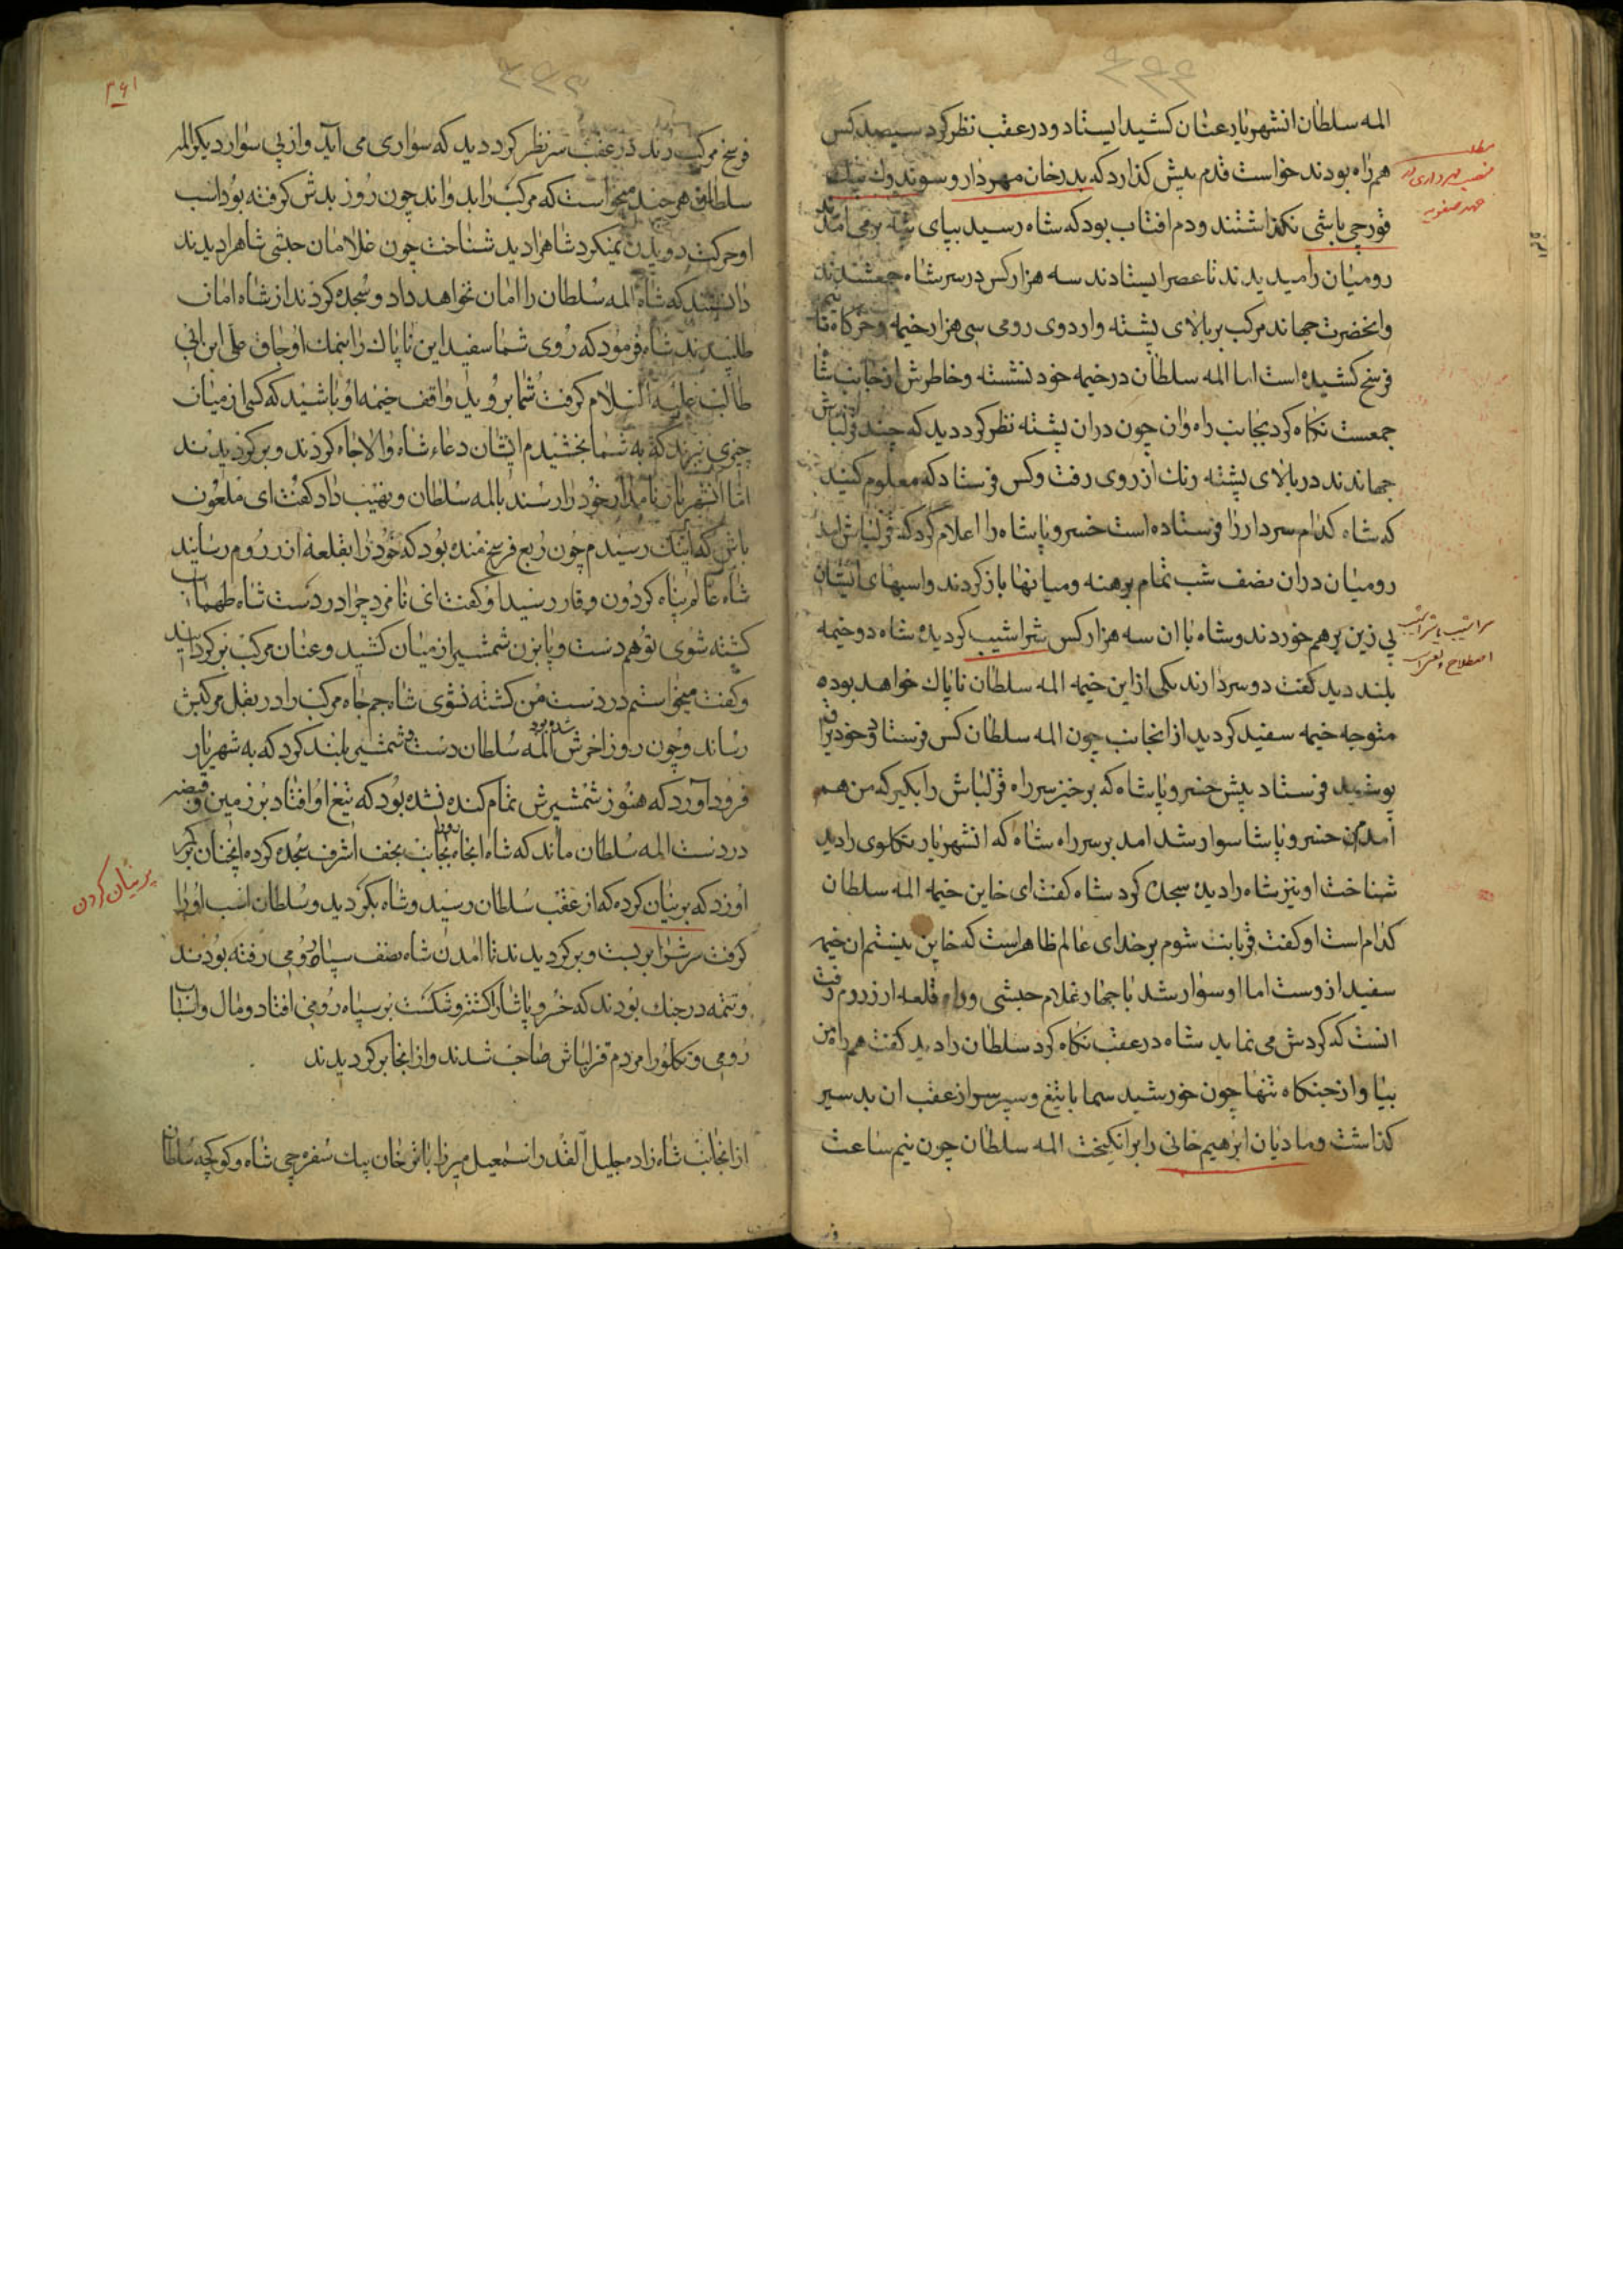 المه سلطان انشهریار عنان کشید ایستاد و در عقب نظر کرد سیصد کس
همراه بودند خواست قدم پیش کذارد که بدرخان مهردار و سوندوك بیك
قورچی باشی نکذاشتند ودم افتاب بود که شاه رسید بپای پشته برمی امدند
رومیان را میدیدند تا عصر ایستادند سه هزار کس در سر شاه جمعشدند
وانحضرت جهاند مرکب بر بالای پشته واردوی رومی سی هزار خیمه وخرکاه تا نیم
فرسخ کشیده است اما المه سلطان در خیمه خود نشسته وخاطرش از جانب شاه
جمعست نکاه کرد بجانب راه وان چون دران پشته نظر کرد دید که چند قزلباش
جهاندند در بالای پشته رنك از روی رفت وکس فرستاد که معلوم کنید
که شاه کدام سردار را فرستاده است خسرو پاشاه را اعلام کرد که قزلباش امد
رومیان دران نصف شب تمام برهنه ومیانها باز کردند واسبهای ایشان
بی زین برهم خوردند وشاه با ان سه هزار کس شراشیب کردیده شاه دو خیمه
بلند دید کفت دو سردارند یکی از این خیمه المه سلطان ناپاك خواهد بوده
متوجه خیمه سفید کردید از انجانب چون المه سلطان کس فرستاد وخود یراق
پوشید فرستاد پیش خسرو پاشاه که برخیز سر راه قزلباش را بکیر که من هم
امدم خسرو پاشا سوار شد امد بر سر راه شاه که انشهریار تکلوی را دید
شناخت او نیز شاه را دیده سجده کرد شاه کفت ای خاین خیمه المه سلطان
کدام است او کفت قربانت شوم بر خدای عالم ظاهراست که خاین نیستم ان خیمه
سفید ازوست اما او سوار شد با چهار غلام حبشی وراه قلعه ارزروم رفت
انست که کردش می نماید شاه در عقب نکاه کرد سلطان را دید کفت همراه من
بیا واز جنکاه تنها چون خورشید سما با تیغ وسپر سر از عقب ان بد سیر
کذاشت ومادیان ابرهیم خانی را برانکیخت المه سلطان چون نیم ساعت
مطلب
منصب مهرداری در
عهد صفویه
سراشیب یا شراشیب
اصطلاح
۲۶۱
فرسخ مرکب زند در عقب سر نظر کرد دید که سواری می اید واز پی سوار دیکر المه
سلطان هر چند میخواست که مرکب را بدواند چون روز بدش کرفته بود اسب
او حرکت دویدن نمیکرد شاهرا دید شناخت چون غلامان حبشی شاهرا دیدند
دانستند که شاه المه سلطان را امان نخواهد داد وسجده کردند از شاه امان
طلبیدند شاه فرمود که روی شما سفید این ناپاك را نمك اوجاق علی ابن ابی
طالب علیه السلام کرفت شما بروید واقف خیمه او باشید که کسی از میان
چیزی نبرند که به شما بخشیدم ایشان دعاء شاه والاجاه کردند وبرکردیدند
اما انشهریار نامدار خود را رسند بالمه سلطان ونهیب داد کفت ای ملعون
باش که اینك رسیدم چون ربع فرسخ مانده بود که خود را بقلعه ارزروم رساند
شاه عالم پناه کردون وقار رسید او کفت ای نامرد چرا در دست شاه طهماسب
کشته شوی تو هم دست وپا بزن شمشیر از میان کشید وعنان مرکب برکردانید
وکفت میخواستم در دست من کشته نشوی شاه جم جاه مرکب را در بغل مرکبش
رساند وچون روز اخرش شده بود المه سلطان دست وشمشیر بلند کرد که به شهریار
فرود آورد که هنوز شمشیرش تمام کنده نشده بود که تیغ او افتاد بر زمین وقبضه
در دست المه سلطان ماند که شاه انجا بجانب نجف اشرف سجده کرده انچنان بر کمر
او زد که برنیان کرده که از عقب سلطان رسید وشاه بکردید وسلطان اسب او را
کرفت سرش را بریست وبرکردیدند تا امدن شاه نصف سپاه رومی رفته بودند
وتتمه در جنك بودند که خسرو پاشا را کشتند وشکست بر سپاه رومی افتاد ومال واسباب
رومی وتکلو را مردم قزلباش صاحب شدند واز انجا برکردیدند
از انجانب شاهزاده جلیل القدر اسمعیل میرزا باتش خان بیك سفره چی شاه وکوکچه سلطان
برنیان کردن